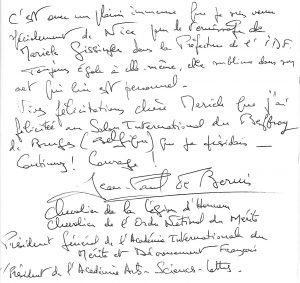 C'est avec un plaisir immense que je suis venu
spécialement de Nice pour le vernissage de
Marick Gissinger dans la Préfecture de l'IDF.
Toujours égale à elle-même, elle sublime dans son
art qui lui est personnel.
Vives félicitations chère Marick que j'ai
félicitée au Salon International du Beffroy
de Bruges (Belgique) que je présidais -
Continuez! Courage!
Jean-Paul de Bernis
Chevalier de la Légion d'Honneur
Chevalier de l'Ordre National du Mérite
Président Général de l'Académie Internationale du
Mérite et Dévouement Français
Président de l'Académie Arts-Sciences-Lettres.